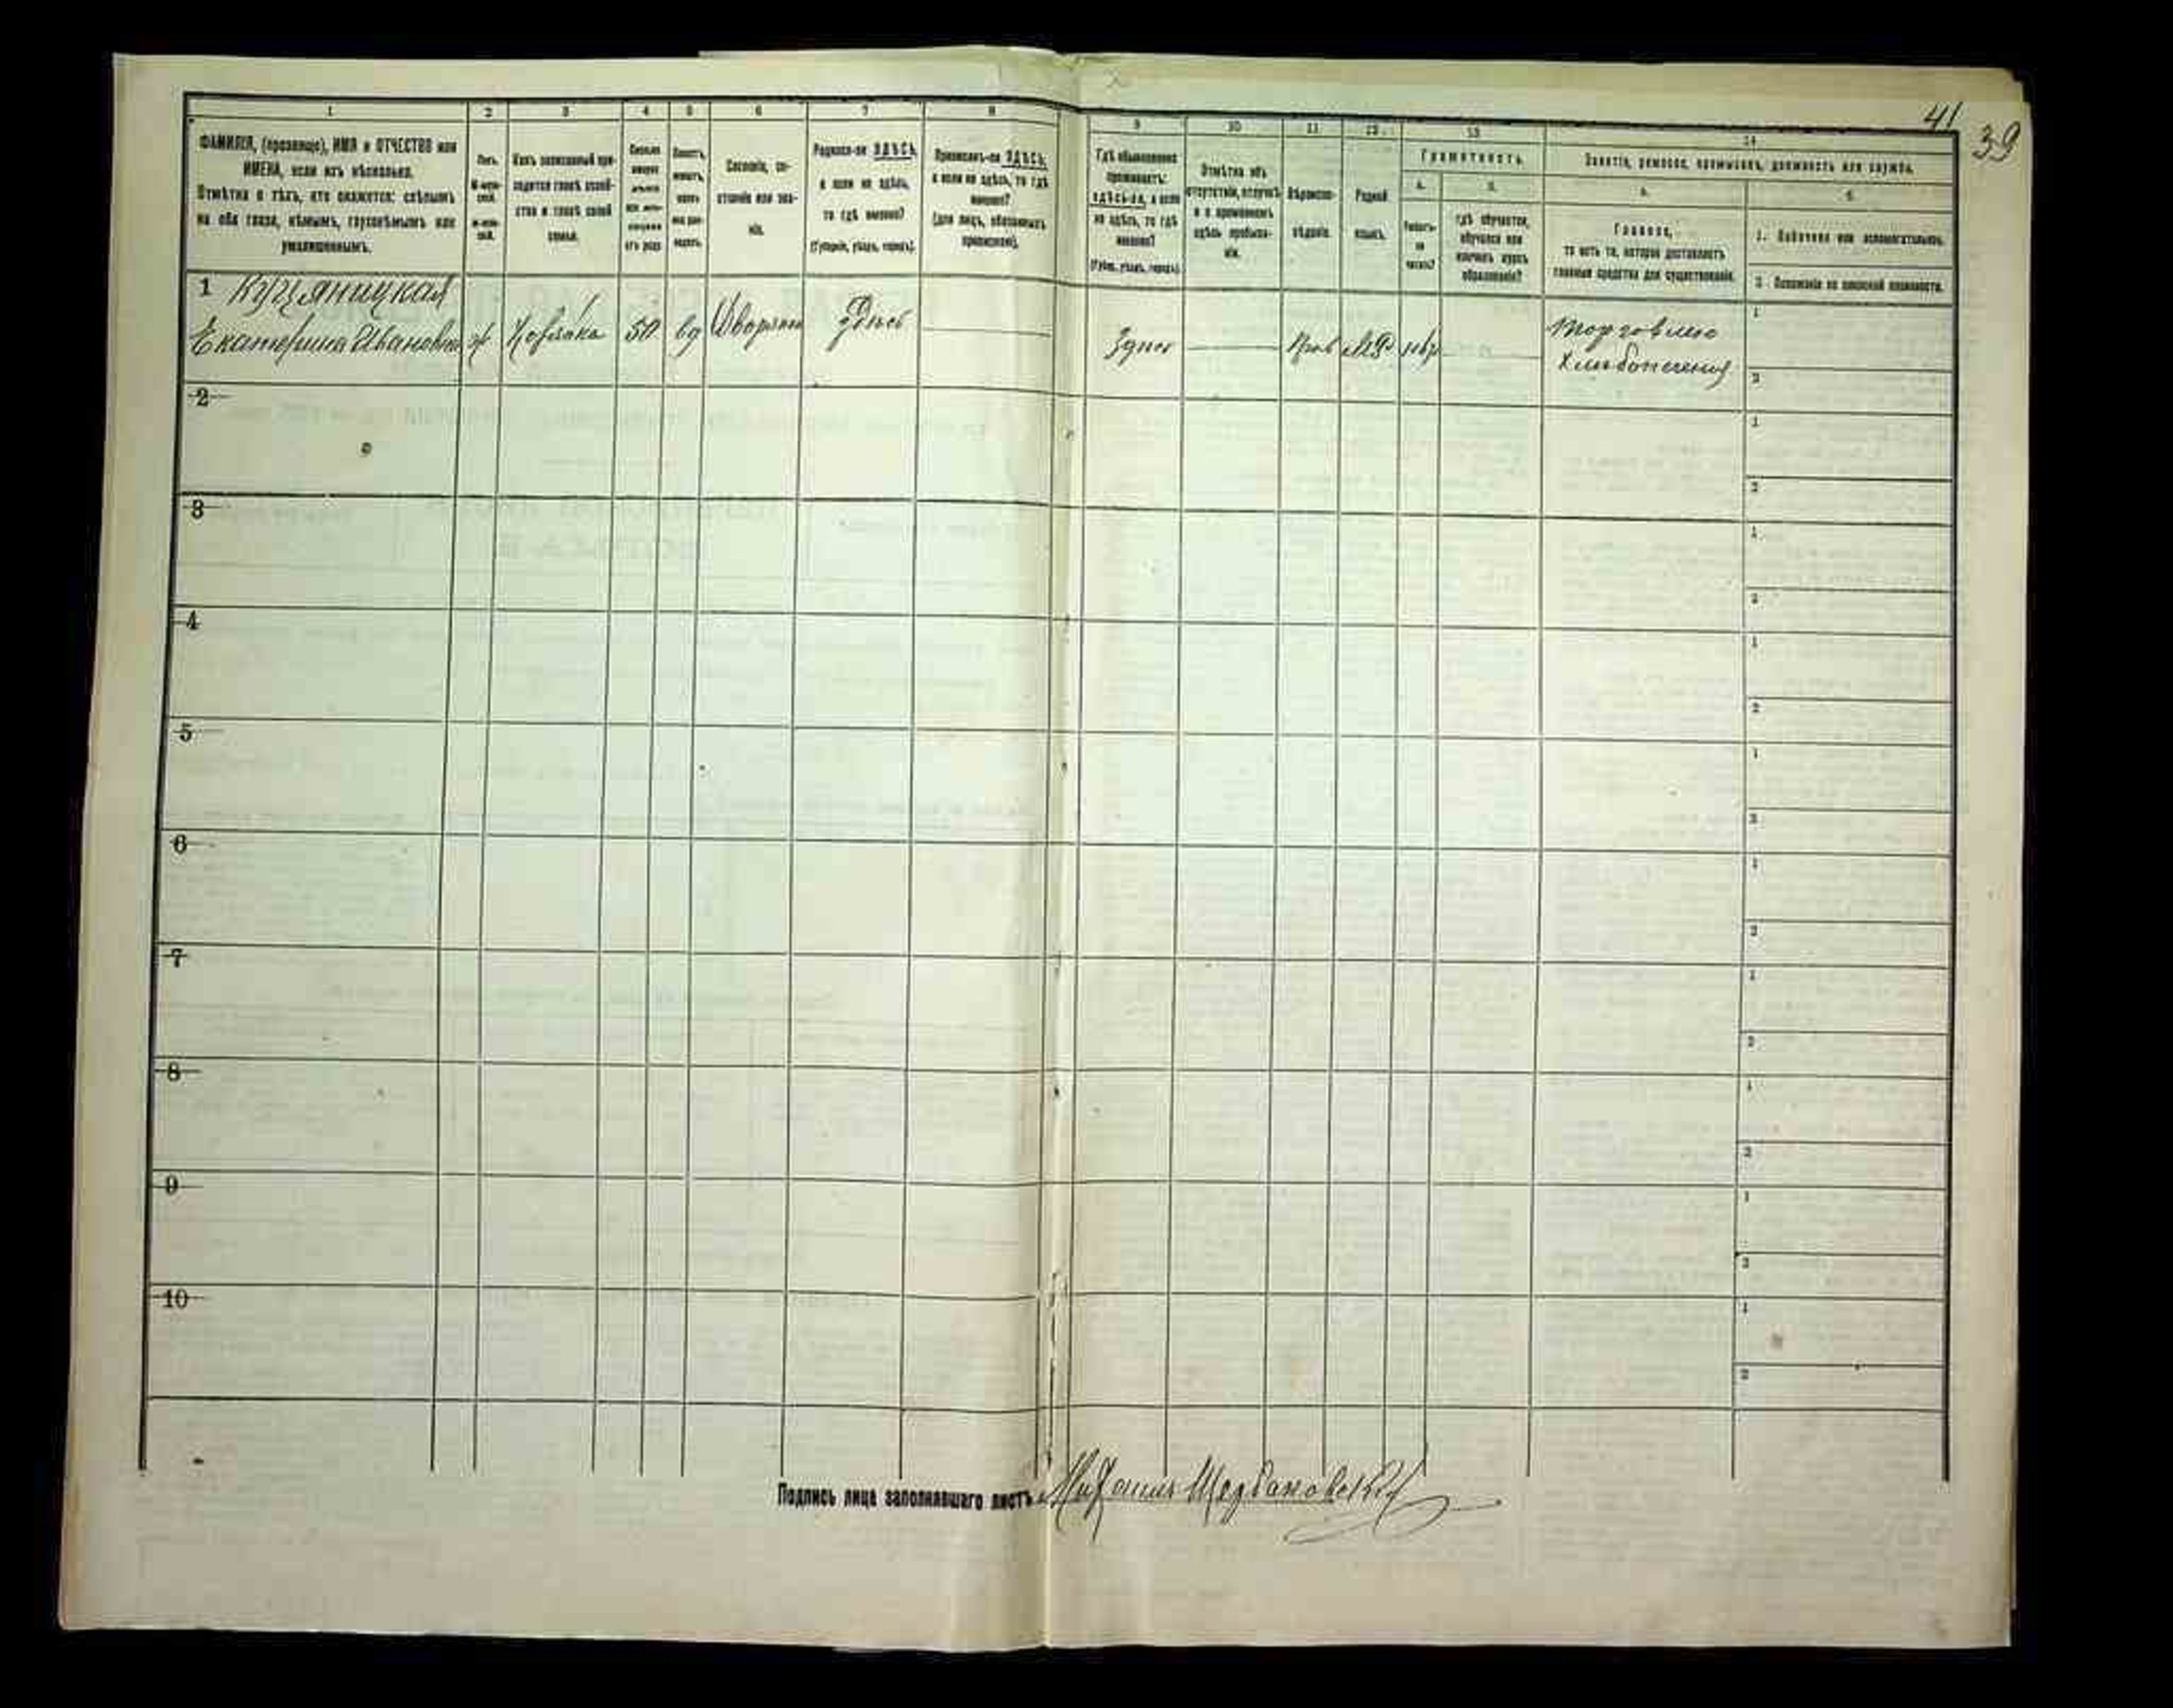 41
39
1 2 3 4 5 6 7 8 9 10 11 12 13 14
ФАМИЛІЯ, (прозвище), ИМЯ и ОТЧЕСТВО или
ИМЕНА, если ихъ нѣсколько.
Отмѣтка о тѣхъ, кто окажется: слѣпымъ
на оба глаза, нѣмымъ, глухонѣмымъ или
умалишеннымъ.
Полъ.
Какъ записанный при-
ходится главѣ хозяй-
ства и главѣ своей
семьи.
Сословіе, со-
стояніе или зва-
ніе.
Родился-ли ЗДѢСЬ,
а если не здѣсь,
то гдѣ именно?
(Губернія, уѣздъ, городъ).
Приписанъ-ли ЗДѢСЬ,
а если не здѣсь, то гдѣ
именно?
(для лицъ, обязанныхъ
припискою).
Гдѣ обыкновенно
проживаетъ:
здѣсь-ли, а если
не здѣсь, то гдѣ
именно?
(Губ., уѣздъ, городъ).
Отмѣтка объ
отсутствіи, отлучкѣ
и о временномъ
здѣсь пребыва-
ніи.
Вѣроиспо-
вѣданіе.
Родной
языкъ.
Грамотность.
а.
Умѣетъ-
ли
читать?
б.
гдѣ обучается,
обучался или
кончилъ курсъ
образованія?
Занятіе, ремесло, промыселъ, должность или служба.
а.
Главное,
то есть то, которое доставляетъ
главныя средства для существованія.
б.
1. Побочное или вспомогательное.
2. Положеніе по воинской повинности.
1
Екатерина Ивановна ж Хозяйка 50 вд здѣсь Здѣсь Прав
Торговлею
Хлѣбопеченія
1
2
2
1
2
3
1
2
4
1
2
5
1
2
6
1
2
7
1
2
8
1
2
9
1
2
10
1
2
Подпись лица заполнявшаго листъ